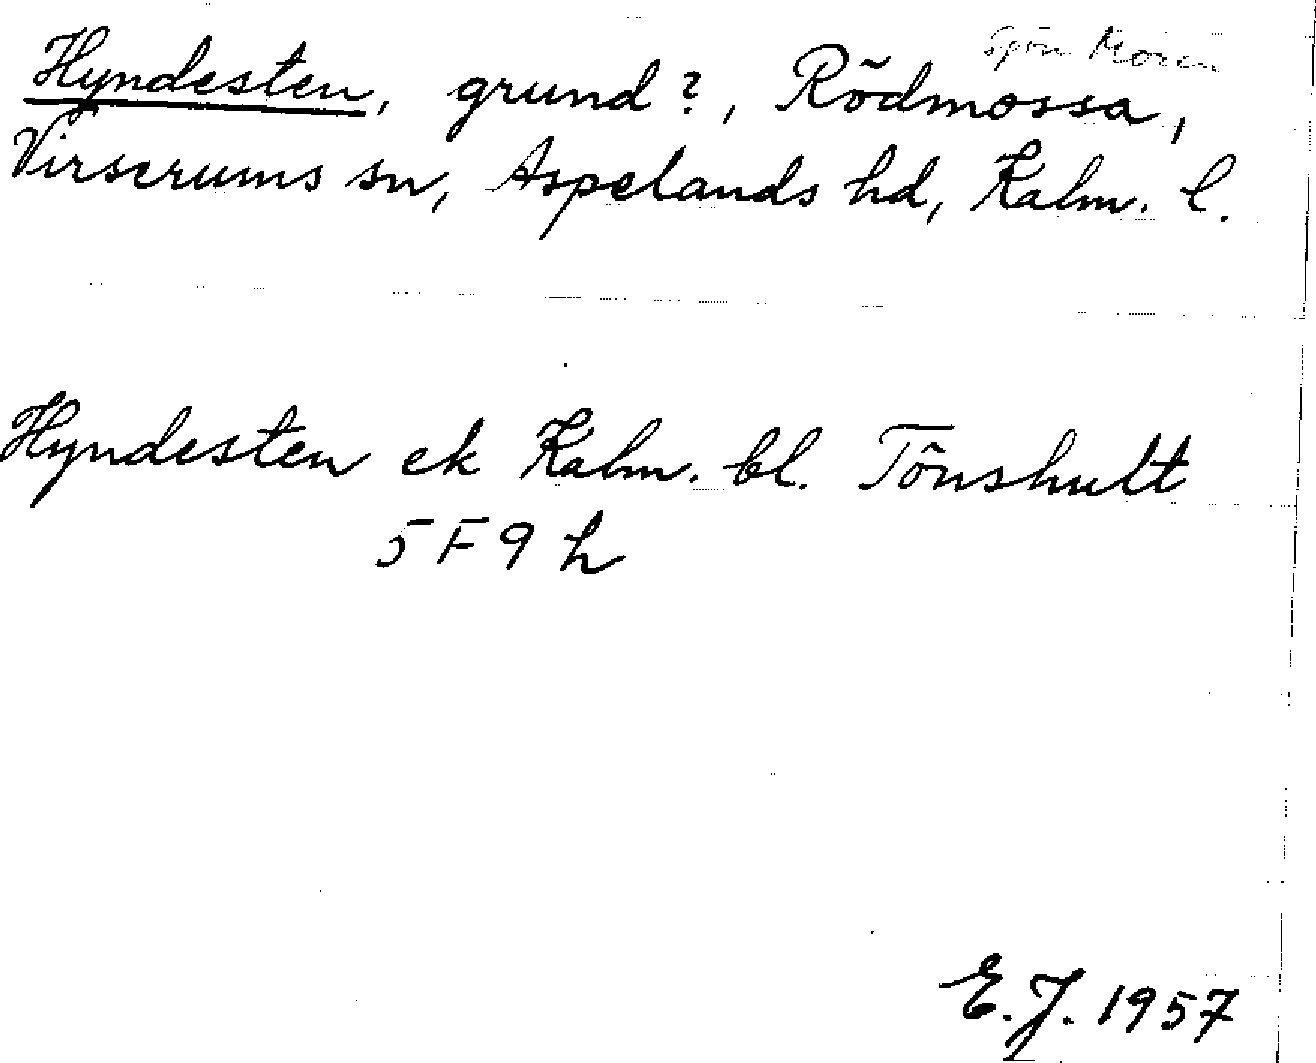 sjön Mören
Hyndesten, grund?, Rödmossa,
Virserums sn, Aspelands hd, Kalm. l.
Hyndesten ek Kalm. bl. Tönshult
5F9h
E.J. 1957